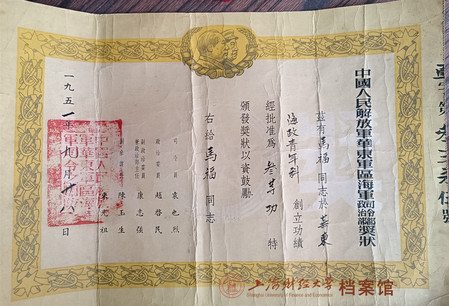 中國人民解放軍華東軍區海軍司令部政治部獎狀
茲有馬福同志於華東
海政青年科創立功績
經批准為叁等功特
頒發獎狀以資鼓勵
右給馬福同志
司令員 袁也烈
政治委員 趙啓民
副政治委員 康志强
陳玉生
一九五一年九月廿八日
上海财经大学 档案馆
Shanghai University of Finance and Economics